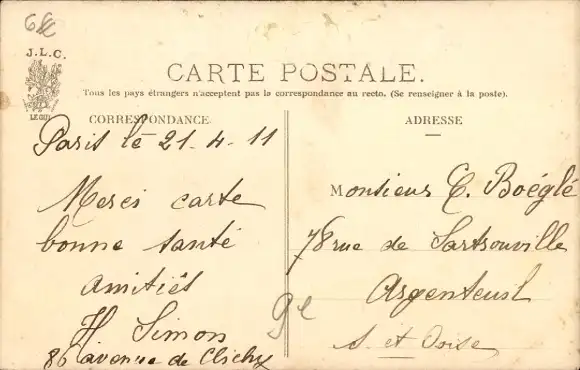 68
J.L.C.
LE GUI
CARTE POSTALE.
Tous les pays étrangers n'acceptent pas la correspondance au recto. (Se renseigner à la poste).
CORRESPONDANCE
Paris le 21-4-11
Merci carte
bonne santé
amitiés
H Simon
86 avenue de Clichy
ADRESSE
Monsieur C. Boéglé
78 rue de Sartrouville
Argenteuil
S. et Oise